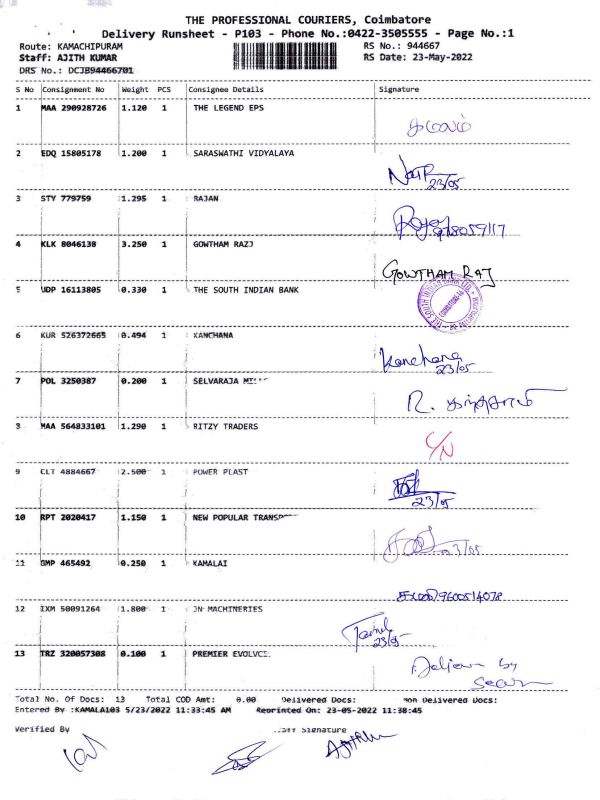 THE PROFESSIONAL COURIERS, Coimbatore
Delivery Runsheet - P103 - Phone No.:0422-3505555 - Page No.:1
Route: KAMACHIPURAM RS No.: 944667
Staff: AJITH KUMAR RS Date: 23-May-2022
DRS No.: DCJB94466701
S No Consignment No Weight PCS Consignee Details Signature
1 MAA 290928726 1.120 1 THE LEGEND EPS
2 EDQ 15805178 1.200 1 SARASWATHI VIDYALAYA
23/05
3 STY 779759 1.295 1 RAJAN
4 KLK 8046138 3.250 1 GOWTHAM RAZJ
GOWTHAM RAJ
5 UDP 16113805 0.330 1 THE SOUTH INDIAN BANK
6 KUR 526372665 0.494 1 KANCHANA
Kanchana
23/05
7 POL 3250387 0.200 1 SELVARAJA
R.
MAA 564833101 1.290 1 RITZY TRADERS
C/N
9 CLT 4884667 2.500 1 POWER PLAST
23/05
10 RPT 2020417 1.150 1 NEW POPULAR
23/05
11 GMP 465492 0.250 1 KAMALAI
9600514078
12 IXM 50091264 1.800 1 JN MACHINERIES
23/05
13 TRZ 320057308 0.100 1 PREMIER
by
Total No. Of Docs: 13 Total COD Amt: 0.00 Delivered Docs: Non Delivered Docs:
Entered By :KAMALA103 5/23/2022 11:33:45 AM Reprinted On: 23-05-2022 11:38:45
Verified By Signature